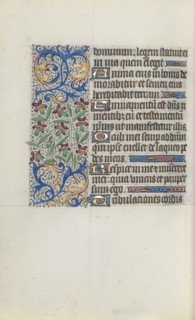 dominum: legem statuit ei
in via quam elegit.
Anima eius in bonis de
morabitur et semen eius
hereditabit terram.
Firmamentum est dominus ti
mentibus eum et testamentum
ipsius ut manifestetur illis.
Oculi mei semper ad dominum
quoniam ipse evellet de laqueo pe
des meos.
Respice in me et miserere
mei: quia unicus et pauper
sum ego.
Tribulationes cordis